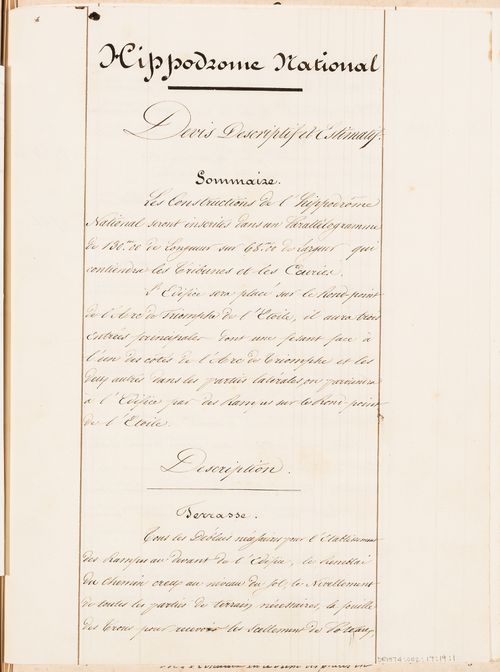 Hippodrome National
Devis Descriptif et Estimatif.
Sommaire.
Les Constructions de l'hippodrôme
National seront inscrites dans un Parallélogramme
de 130.m00 de longueur sur 68.m00 de largeur qui
contiendra les Tribunes et les Écuries.
L'Edifice sera placé sur le Rond-point
de l'Arc de Triomphe de l'Etoile, il aura trois
entrées principales dont une fesant face à
l'un des cotés de l'Arc de Triomphe et les
deux autres dans les parties latérales on parviendra
à l'Edifice par des Rampes sur le Rond-point
de l'Etoile.
Description.
Terrasse.
Tous les Déblais nécessaires pour l'Etablissement
des Rampes au devant de l'Edifice, le Remblai
du Chemin creux au niveau du sol, le Nivellement
de toutes les parties de terrain nécessaires, la fouille
des Trous pour recevoir les scellement de Poteaux
DR1974:0002:019:019:1